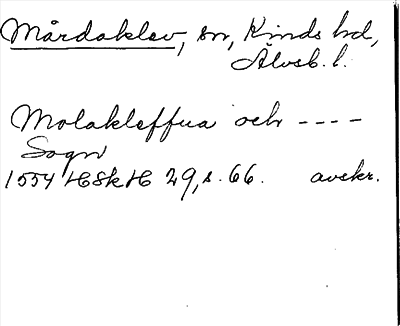 Mårdaklev, sn, Kinds hd,
Älvsb. l.
Molakleffua och ----
Sogn
1554 HSkH 29, s. 66. avskr.